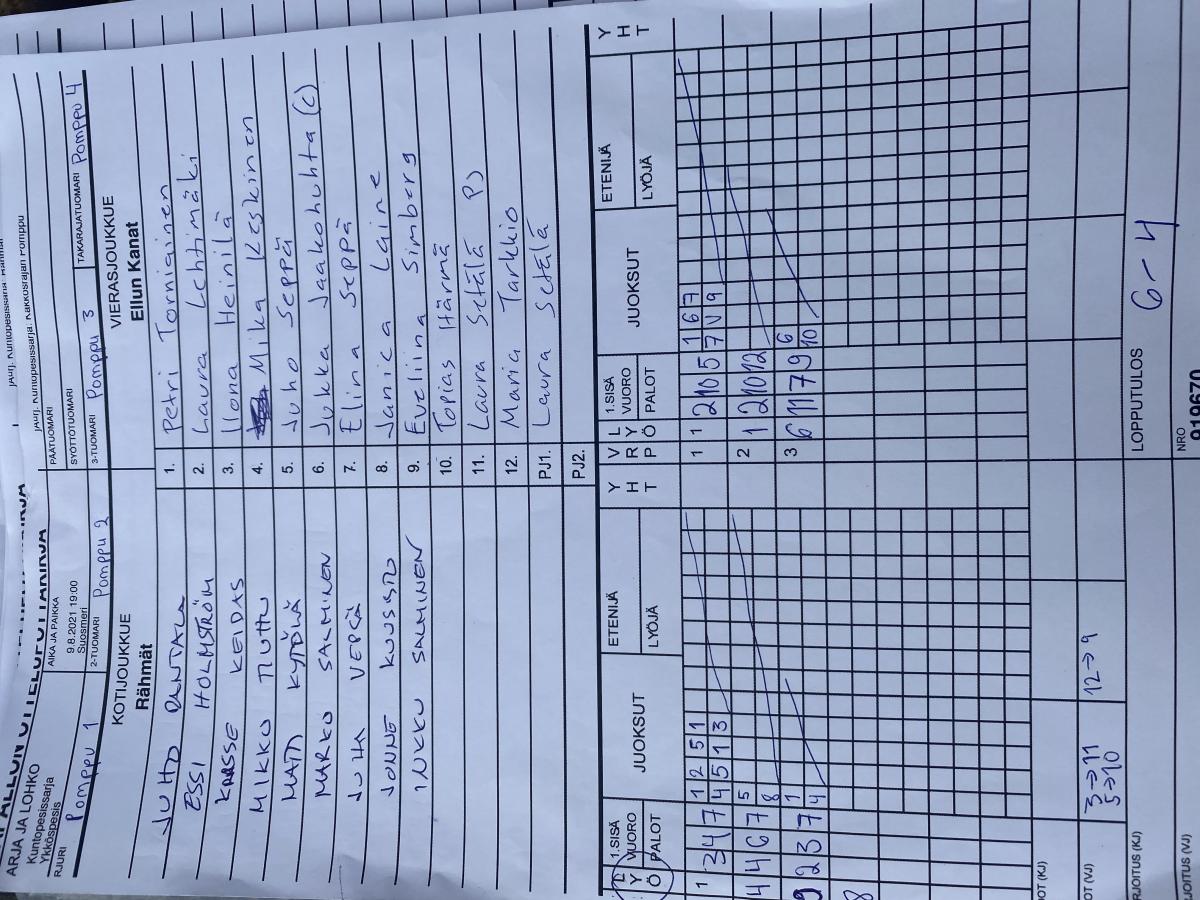 PALLON OTTELUPÖYTÄKIRJA
ARJA JA LOHKO
Kuntopesissarja
Ykköspesis
AIKA JA PAIKKA
9.8.2021 19:00
Suosmeri
PÄÄTUOMARI
SYÖTTÖTUOMARI
RJURI
Pomppu 1
2-TUOMARI Pomppu 2
3-TUOMARI Pomppu 3
TAKARAJATUOMARI Pomppu 4
KOTIJOUKKUE
Rähmät
VIERASJOUKKUE
Ellun Kanat
JUHO RANTALA 1. Petri Torniainen
ESSI HOLMSTRÖM 2. Laura Lehtimäki
KEIDAS 3. Ilona Heinilä
MIKKO 4. Mika Keskinen
MATTI KYTÖLÄ 5. Juho Seppä
MARKO SALMINEN 6. Jukka Jaakohuhta (c)
JUHA 7. Elina Seppä
JONNE 8. Janica Laine
SALMINEN 9. Eveliina Simberg
10. Topias Härmä
11. Laura Setälä PJ
12. Maria Tarkkio
PJ1. Laura Setälä
PJ2.
1.SISÄ VUORO PALOT JUOKSUT ETENIJÄ LYÖJÄ YHT VRP LYÖ 1.SISÄ VUORO PALOT JUOKSUT ETENIJÄ LYÖJÄ YHT
1 3 4 7 1 2 5 1 1 1 2 10 5 1 6 7
4 5 1 3 7 V 9
4 4 6 7 5 2 1 2 10 12
8
9 2 3 7 1 3 6 11 7 9 6
4 10
8
OT (KJ)
OT (VJ) 3→11 12→9
5→10
RJOITUS (KJ) LOPPUTULOS 6-4
RJOITUS (VJ) NRO 919670